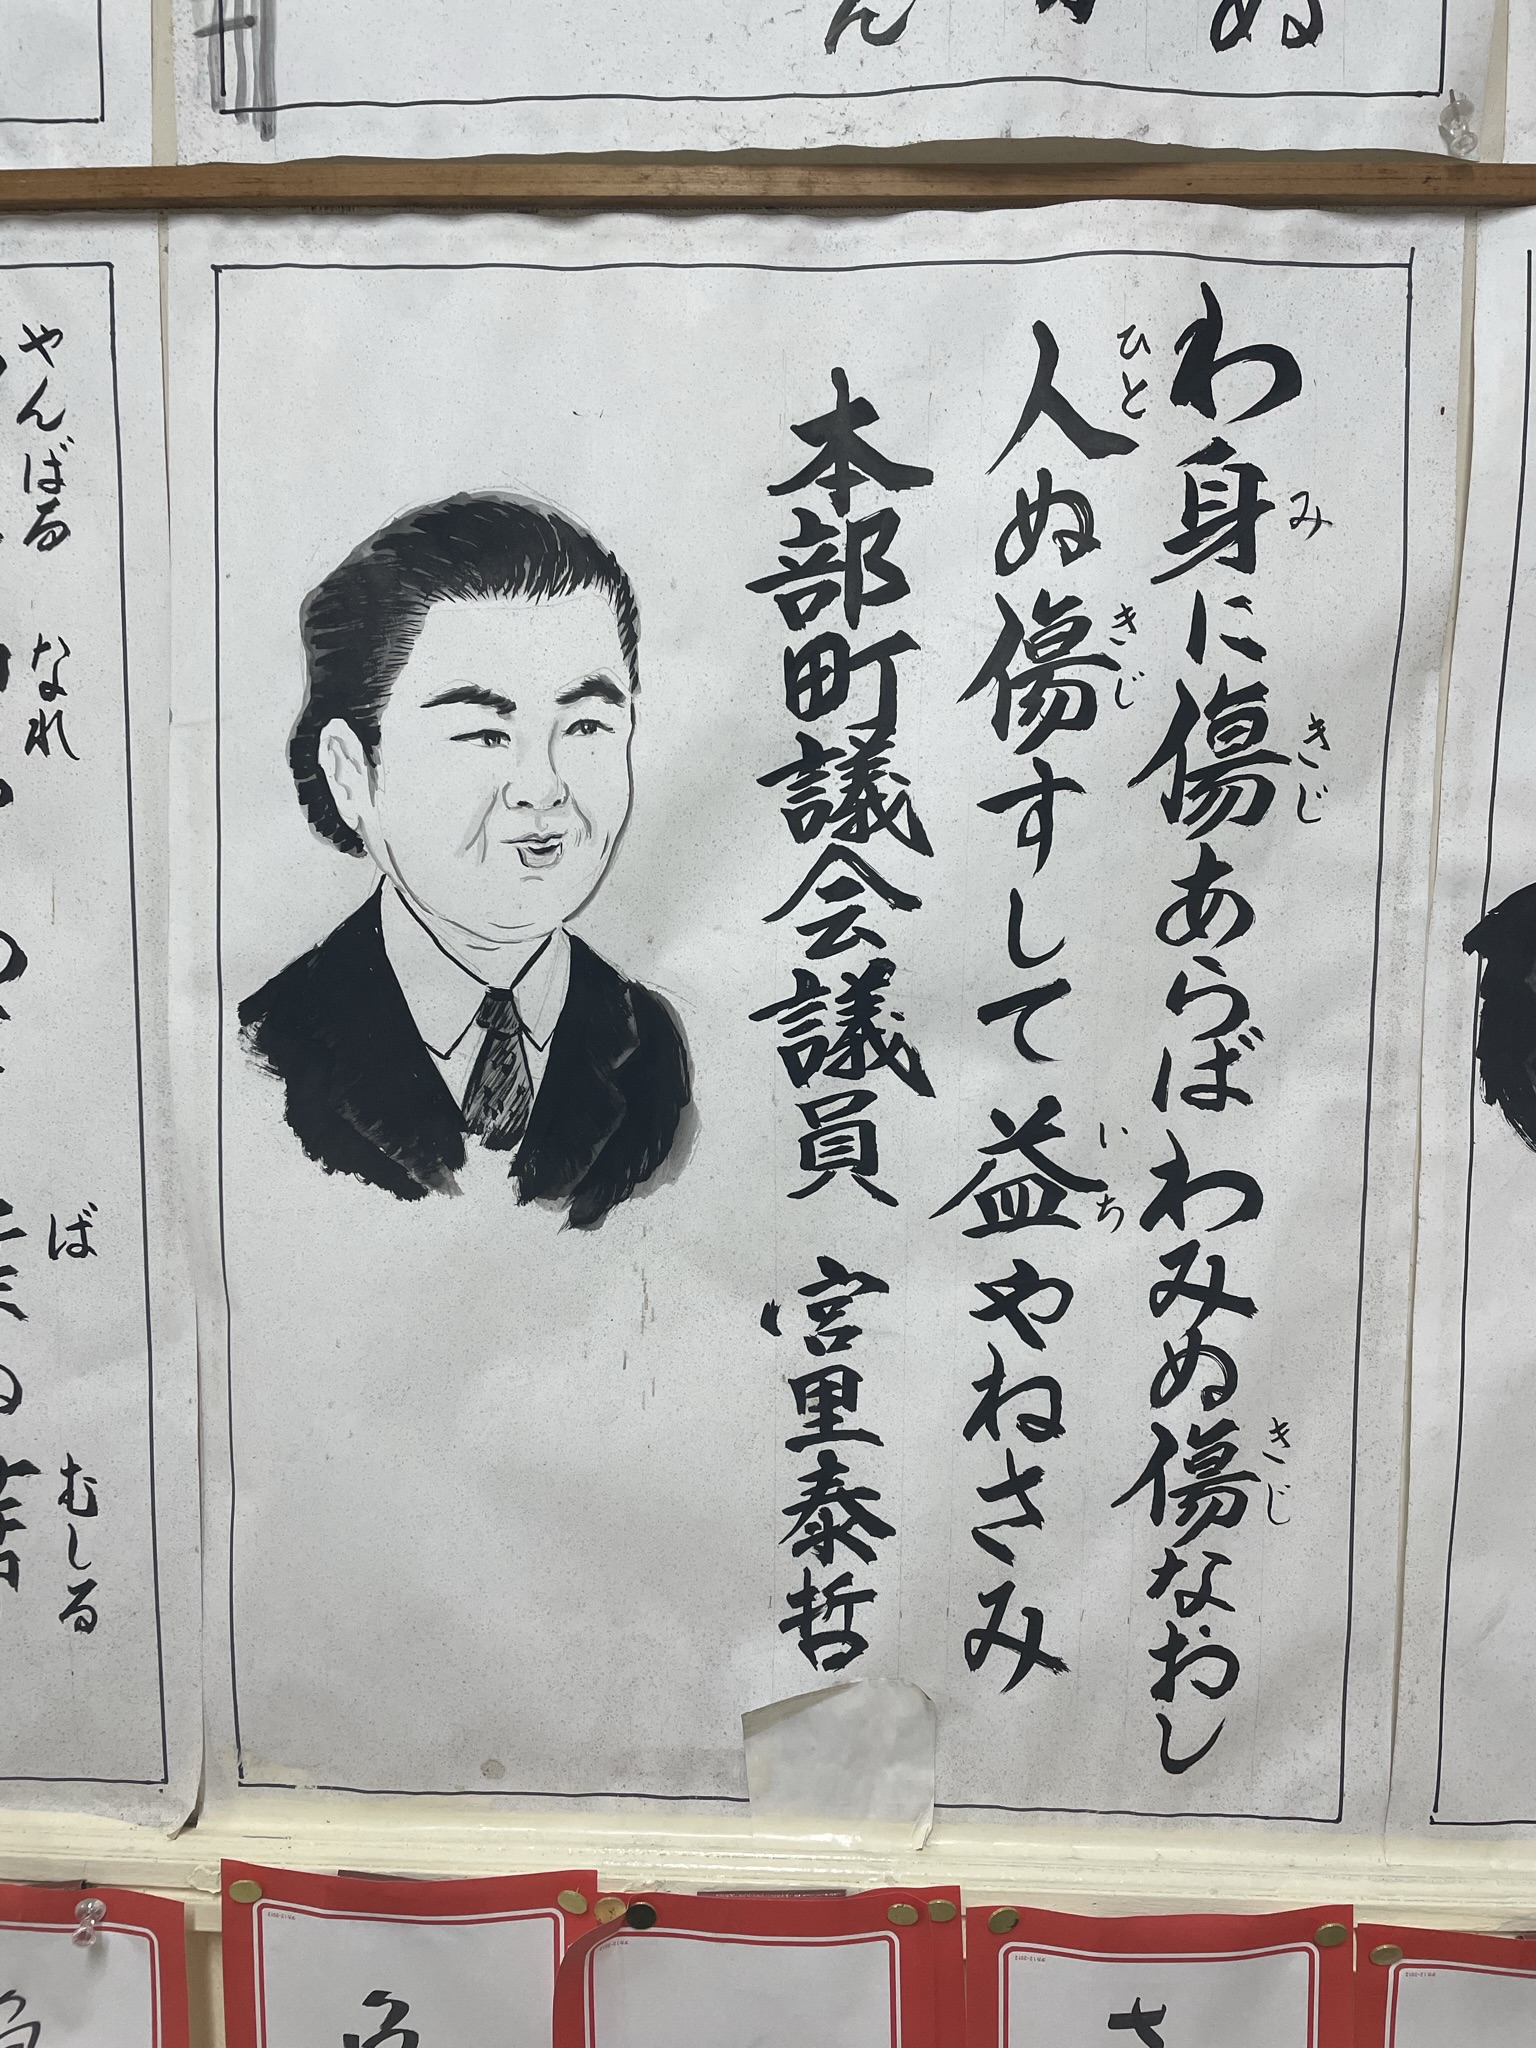 わ身に傷あらば わみぬ傷なおし
み
きじ
きじ
人ぬ傷すして 益やねさみ
ひと
きじ
いち
本部町議会議員 宮里泰哲
やんばる なれ ば むしる